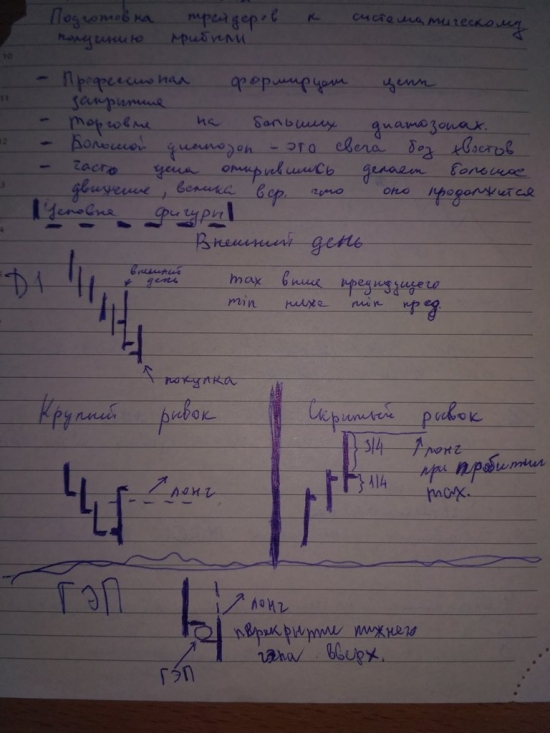 Подготовка трейдеров к систематическому
получению прибыли
- Профессионал формируют цены
закрытие
- Торговля на больших диапозонах.
- Большой диапозон - это свеча без хвостов
- Часто цена открывшись делает большое
движение, велика вер. что оно продолжится
Ценовые фигуры
Внешний день
D1
внешний
день
max выше предыдущего
min ниже min пред.
покупка
Крупный рывок
лонг
Скрытый рывок
3/4
1/4
лонг
при пробитии
max.
ГЭП
лонг
перекрытие нижнего
гэпа вверх.
ГЭП